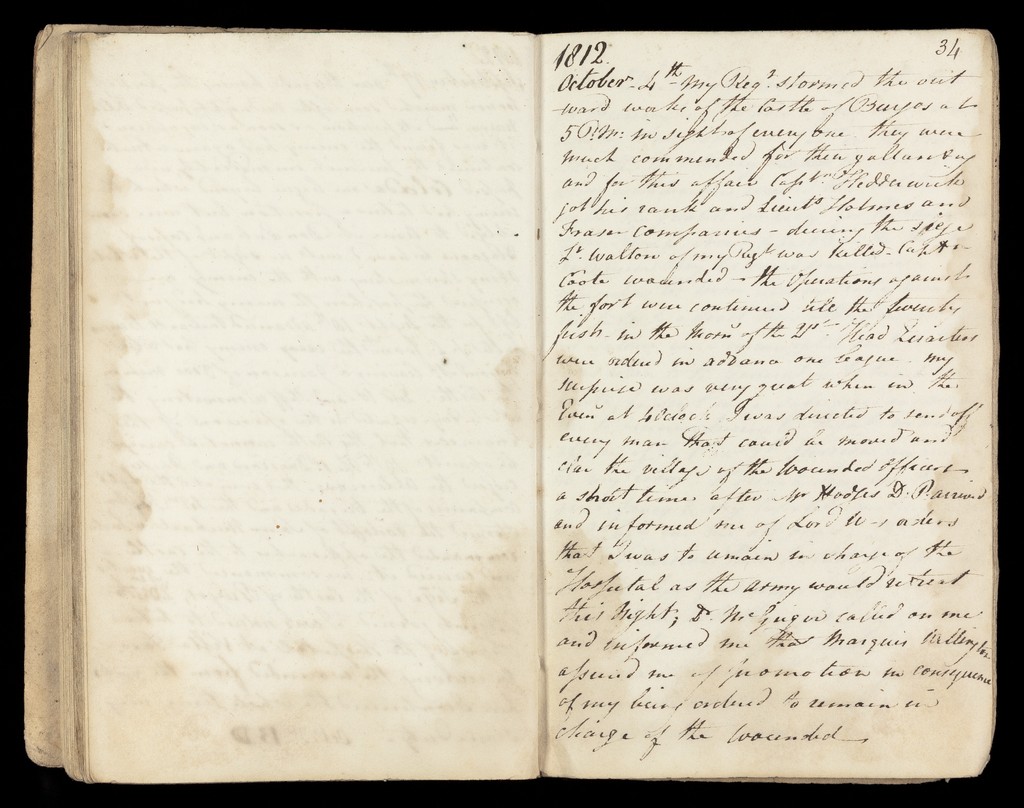 34
1812.
October - 4th - My Regt. stormed the out
ward works of the Castle of Burgos at
5 P.M. in sight of every one they were
much commended for their gallantry
and for this affair Captn. Hedderwick
got his rank and Lieuts Holmes and
Fraser companies - during the siege
Lt. Walton of my Regt was killed - Captn
Coote wounded - the Operations against
the fort were continued till the twenty
first - in the Morng. of the 21st Head Quarters
were ordered in advance one league. my
surprise was very great when in the
Eveng at o'clock I was directed to send off
every man that could be moved and
clear the village of the Wounded Officers
a short time after Mr Hodges D. P. arrived
and informed me of Lord W-s orders
that I was to remain in charge of the
Hospital as the army would retreat
this Night; Dr. McGrigor called on me
and informed me that Marquis Wellington
assured me of promotion in consequence
of my being ordered to remain in
charge of the Wounded